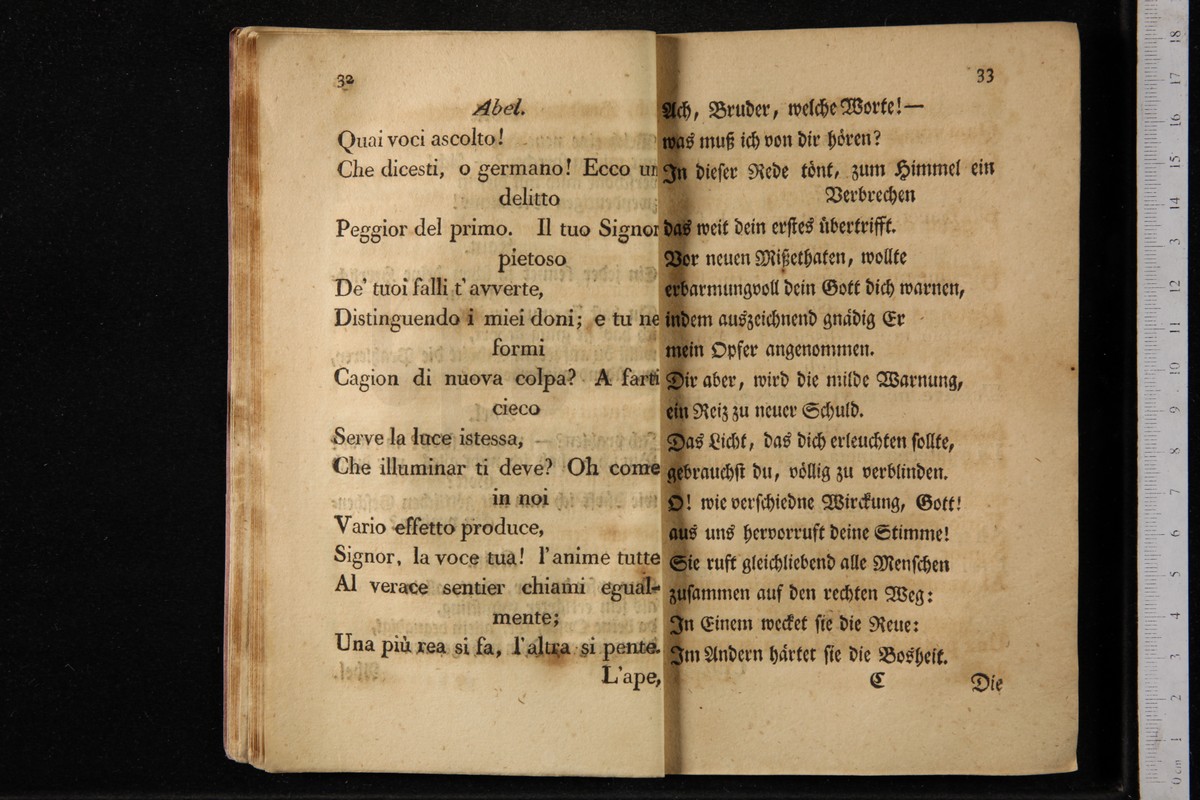 32
Abel.
Quai voci ascolto!
Che dicesti, o germano! Ecco un
delitto
Peggior del primo. Il tuo Signor
pietoso
De' tuoi falli t' avverte,
Distinguendo i miei doni; e tu ne
formi
Cagion di nuova colpa? A farti
cieco
Serve la luce istessa,
Che illuminar ti deve? Oh come
in noi
Vario effetto produce,
Signor, la voce tua! l'anime tutte
Al verace sentier chiami egual-
mente;
Una più rea si fa, l'altra si pente.
L'ape,
33
Ach, Bruder, welche Worte! —
was muß ich von dir hören?
In dieser Rede tönt, zum Himmel ein
Verbrechen
das weit dein erstes übertrifft.
Vor neuen Mißethaten, wollte
erbarmungvoll dein Gott dich warnen,
indem auszeichnend gnädig Er
mein Opfer angenommen.
Dir aber, wird die milde Warnung,
ein Reiz zu neuer Schuld.
Das Licht, das dich erleuchten sollte,
gebrauchst du, völlig zu verblinden.
O! wie verschiedne Wirckung, Gott!
aus uns hervorruft deine Stimme!
Sie ruft gleichliebend alle Menschen
zusammen auf den rechten Weg:
In Einem wecket sie die Reue:
Im Andern härtet sie die Bosheit.
C
Die
0 cm 1 2 3 4 5 6 7 8 9 10 11 12 13 14 15 16 17 18